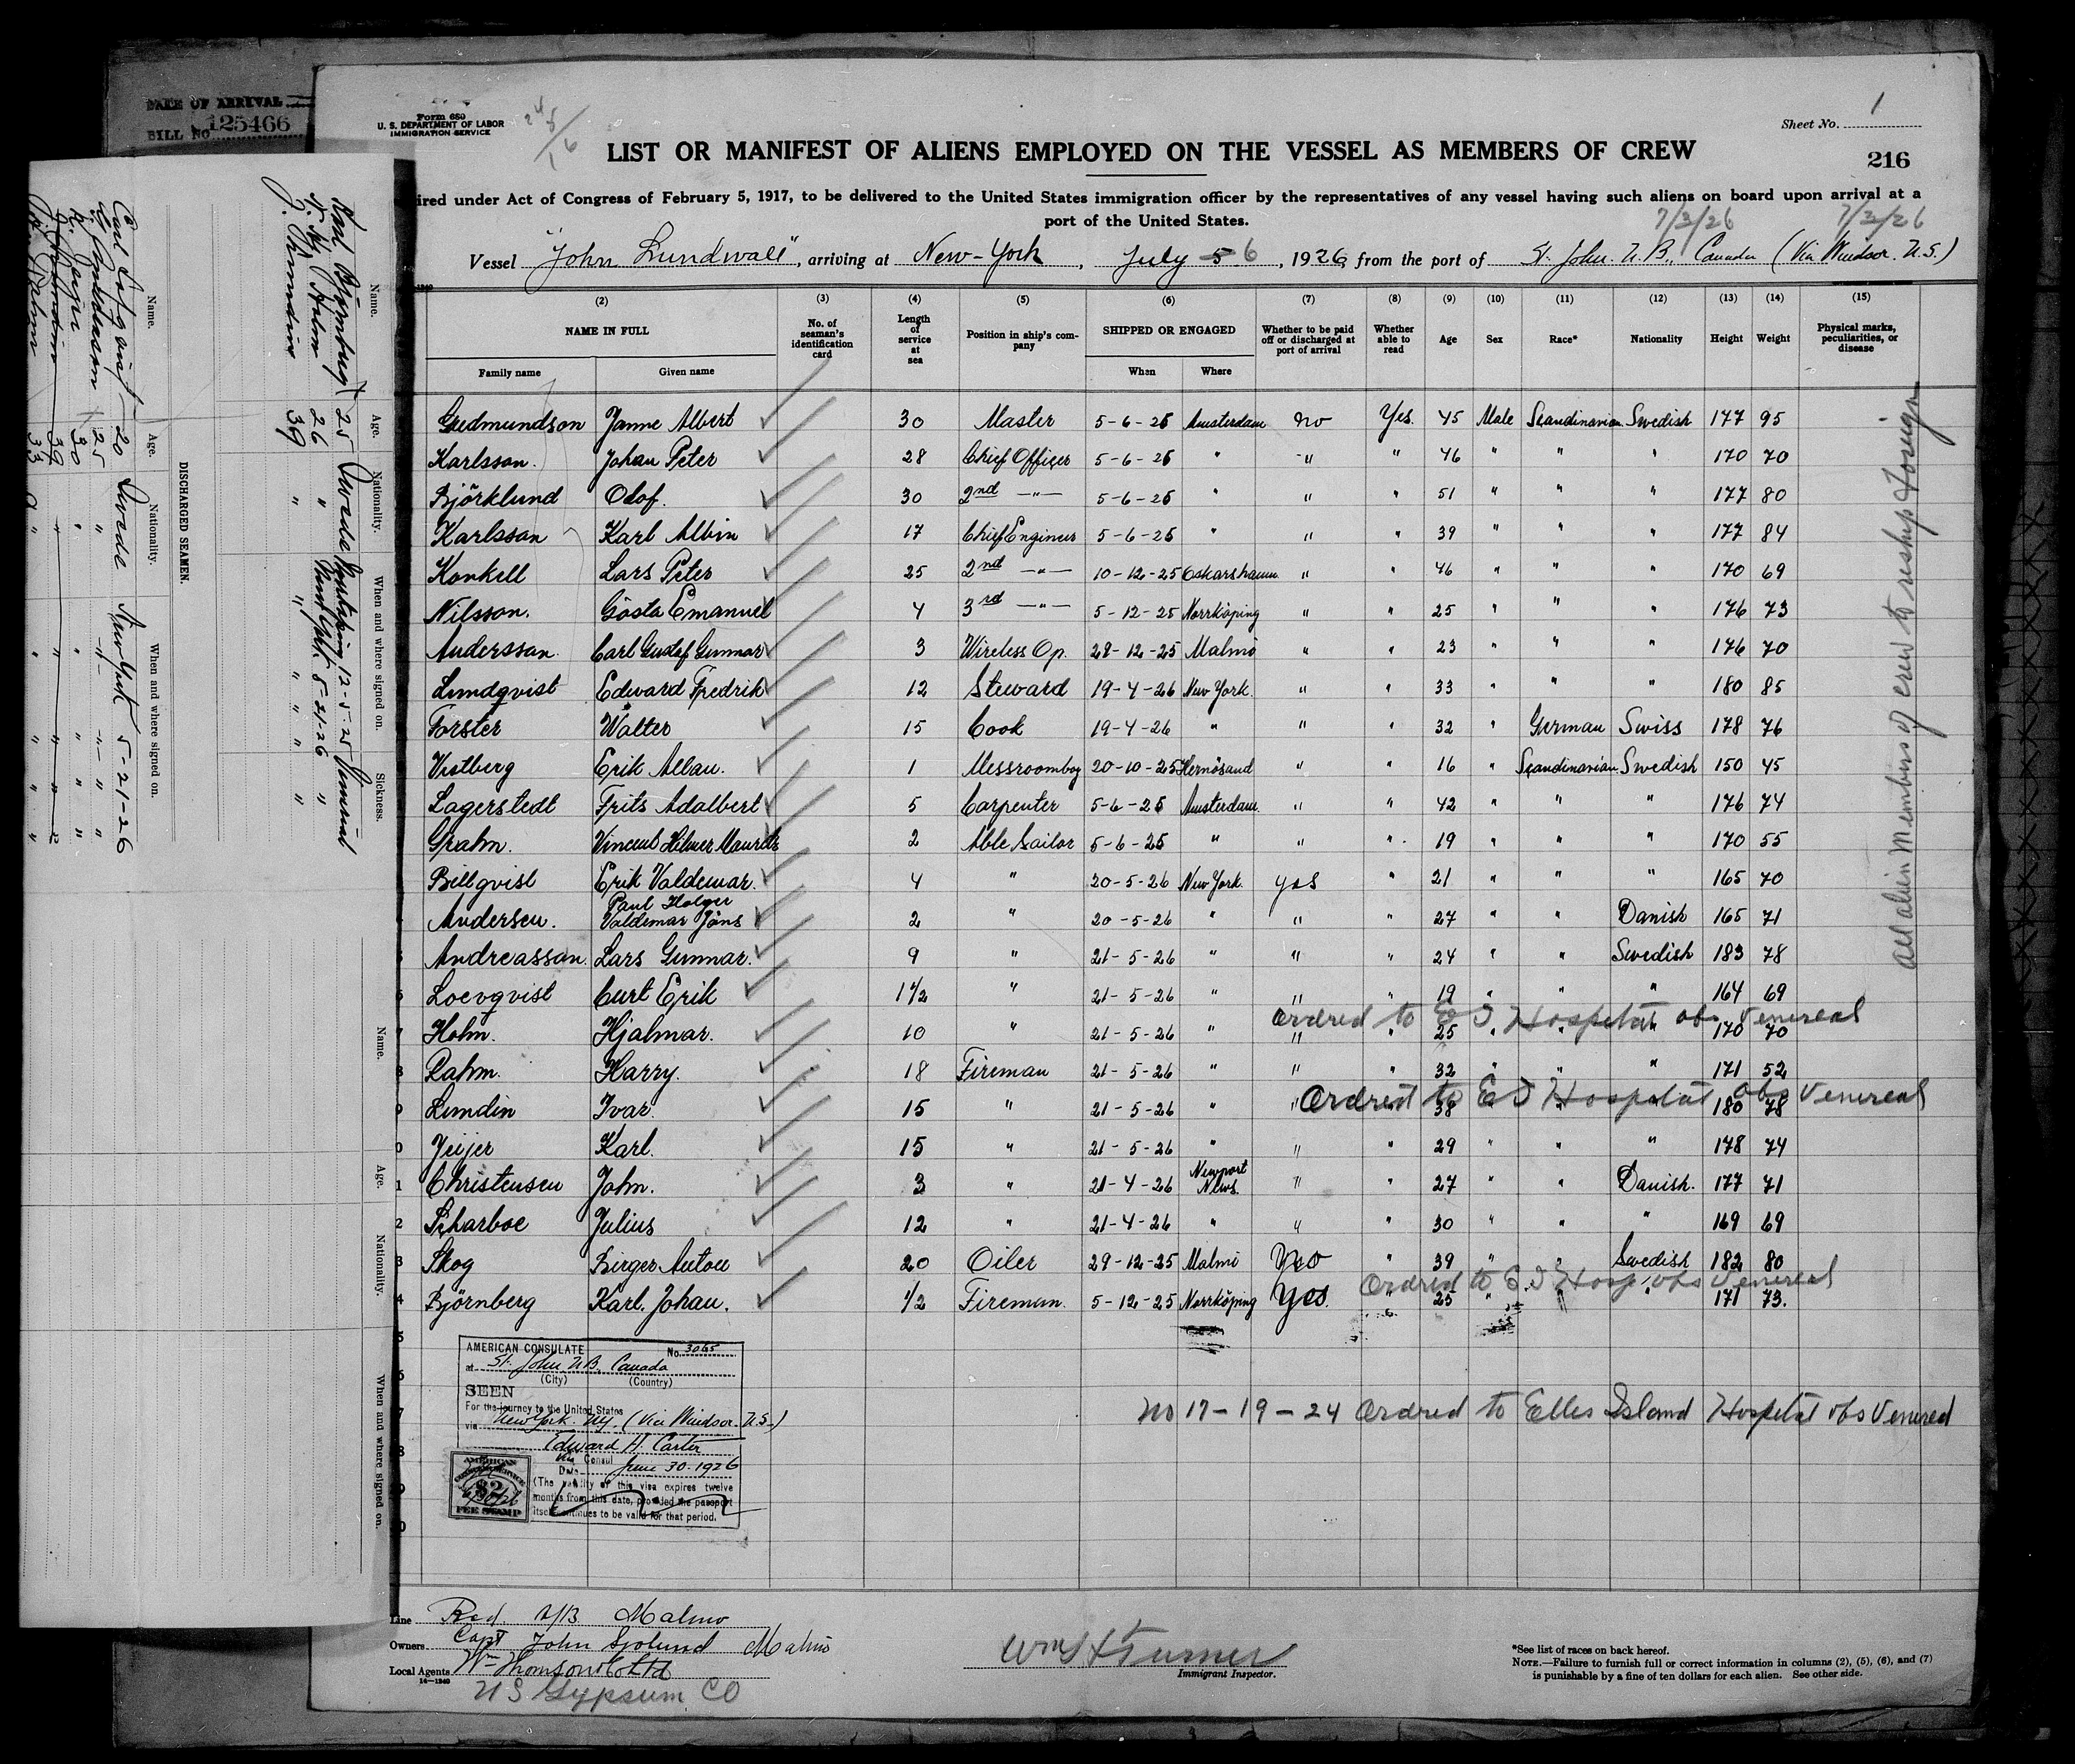 DATE OF ARRIVAL
BILL No. 125466
Form 680
U. S. DEPARTMENT OF LABOR
IMMIGRATION SERVICE
Sheet No. 1
LIST OR MANIFEST OF ALIENS EMPLOYED ON THE VESSEL AS MEMBERS OF CREW
216
ired under Act of Congress of February 5, 1917, to be delivered to the United States immigration officer by the representatives of any vessel having such aliens on board upon arrival at a
port of the United States.
7/3/26 7/3/26
Vessel "John Lundwall", arriving at New-York, July 5 6, 1926, from the port of St. John. N.B., Canada (Via Windsor. N.S.)
(2) (3) (4) (5) (6) (7) (8) (9) (10) (11) (12) (13) (14) (15)
NAME IN FULL No. of seaman's identification card Length of service at sea Position in ship's company SHIPPED OR ENGAGED Whether to be paid off or discharged at port of arrival Whether able to read Age Sex Race* Nationality Height Weight Physical marks, peculiarities, or disease
Family name Given name When Where
Gudmundson Janne Albert 30 Master 5-6-25 Amsterdam no Yes. 45 Male Scandinavian Swedish 177 95
Karlsson. Johan Peter 28 Chief Officer 5-6-25 " " " 46 " " " 170 70
Björklund Olof. 30 2nd -"- 5-6-25 " " " 51 " " " 177 80
Karlsson Karl Albin 17 Chief Engineer 5-6-25 " " " 39 " " " 177 84
Konkell Lars Peter 25 2nd -"- 10-12-25 Oskarshamn " " 46 " " " 170 69
Nilsson. Gösta Emanuel 4 3rd -"- 5-12-25 Norrköping " " 25 " " " 176 73
Andersson. Carl Gustaf Gunnar 3 Wireless Op. 28-12-25 Malmö " " 23 " " " 176 70
Lundqvist Edward Fredrik 12 Steward 19-4-26 New York. " " 33 " " " 180 85
Forster Walter 15 Cook 19-4-26 " " " 32 " German Swiss 178 76
Vestberg Erik Allan. 1 Messroomboy 20-10-25 Hernösand " " 16 " Scandinavian Swedish 150 45
Lagerstedt Frits Adalbert 5 Carpenter 5-6-25 Amsterdam. " " 42 " " " 176 74
Grahn. Vincent Hilmer Mauritz 2 Able Sailor 5-6-25 " " " 19 " " " 170 55
Billqvist Erik Valdemar. 4 " 20-5-26 New York. yes " 21 " " " 165 70
Andersen. Paul Holger Valdemar Jöns 2 " 20-5-26 " " " 27 " " Danish 165 71
Andreasson. Lars Gunnar. 9 " 21-5-26 " " " 24 " " Swedish 183 78
Loevqvist Curt Erik 1 1/2 " 21-5-26 " " " 19 " " " 164 69
ordred to E I Hospital obs Venereal
Holm. Hjalmar. 10 " 21-5-26 " " " 25 " " " 170 70
Rahm. Harry. 18 Fireman 21-5-26 " " " 32 " " " 171 52
Ordred to E I Hospital obs Venereal
Lundin Ivar. 15 " 21-5-26 " " " 38 " " " 180 78
Jeijer Karl. 15 " 21-5-26 " " " 29 " " " 178 74
Christensen John. 3 " 21-4-26 Newport News. " " 27 " " Danish. 177 71
Scharboe Julius 12 " 21-4-26 " " " 30 " " " 169 69
Skog Birger Anton 20 Oiler 29-12-25 Malmö Yes " 39 " " Swedish 182 80
Ordred to E.I Hosp. obs Venereal
Björnberg Karl. Johan. 1/2 Fireman. 5-12-25 Norrköping Yes. " 25 " " " 171 73.
All alien Members of crew to reship foreign
AMERICAN CONSULATE No. 3065
at St. John, N.B. Canada
(City) (Country)
SEEN
For the journey to the United States
via New York. N.Y. (Via Windsor. N.S.)
Edward H. Carter
Consul
Date June 30-1926
(The validity of this visa expires twelve
months from this date, provided the passport
itself continues to be valid for that period.
AMERICAN
$2
FEE STAMP
No 17-19-24 ordred to Elles Island Hospital obs Venereal
Line Red. A/B Malmo
Owners Capt John Sjolund Malmö
Local Agents Wm Thomson & Co Ltd
14-1240
U S Gypsum CO
Wm H Turner
Immigrant Inspector.
*See list of races on back hereof.
NOTE.—Failure to furnish full or correct information in columns (2), (5), (6), and (7)
is punishable by a fine of ten dollars for each alien. See other side.
DISCHARGED SEAMEN.
Name. Age. Nationality. When and where signed on. Sickness.
Karl Björnberg 25 Swede Norrköping 12-5-25 Venereal
Hj. Holm 26 " New York 5-21-26 "
J. Lundin 39 " " " "
Name. Age. Nationality. When and where signed on.
20 Swede New York 5-21-26
Andreasson 25 " " "
K. Jeijer 30 " " "
J. Lundin 39 " " "
Rahm 33 " " "
Name. Age. Nationality. When and where signed on.